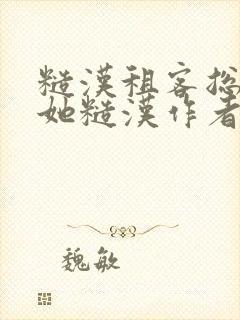 糙漢租客揔
她糙漢作者
魏敏